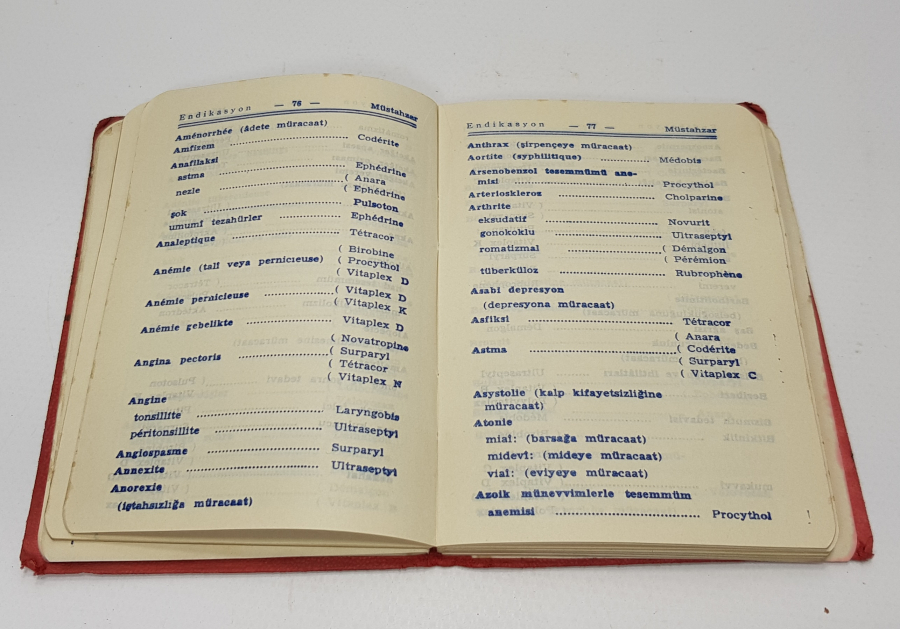 Endikasyon — 76 — Müstahzar
Aménorrhée (âdete müracaat)
Amfizem ........ Codérite
Anafilaksi
astma ........ Ephédrine
nezle ........ ( Anara
( Ephédrine
şok ........ Pulsoton
umumî tezahürler ........ Ephédrine
Analeptique ........ Tétracor
( Birobine
Anémie (talî veya pernicieuse) ( Procythol
( Vitaplex D
Anémie pernicieuse ........ ( Vitaplex D
( Vitaplex K
Anémie gebelikte ........ Vitaplex D
( Novatropine
Angina pectoris ........ ( Surparyl
( Tétracor
( Vitaplex N
Angine
tonsillite ........ Laryngobis
péritonsillite ........ Ultraseptyl
Angiospasme ........ Surparyl
Annexite ........ Ultraseptyl
Anorexie
(iştahsızlığa müracaat)
Endikasyon — 77 — Müstahzar
Anthrax (şirpençeye müracaat)
Aortite (syphilitique) ........ Médobis
Arsenobenzol tesemmümü ane-
misi ........ Procythol
Arterioskleroz ........ Cholparine
Arthrite
eksudatif ........ Novurit
gonokoklu ........ Ultraseptyl
romatizmal ........ ( Démalgon
( Pérémion
tüberküloz ........ Rubrophène
Asabî depresyon
(depresyona müracaat)
Asfiksi ........ Tétracor
( Anara
Astma ........ ( Codérite
( Surparyl
( Vitaplex C
Asystolie (kalp kifayetsizliğine
müracaat)
Atonie
miaî: (barsağa müracaat)
midevî: (mideye müracaat)
viaî: (eviyeye müracaat)
Azoik münevvimlerle tesemmüm
anemisi ........ Procythol